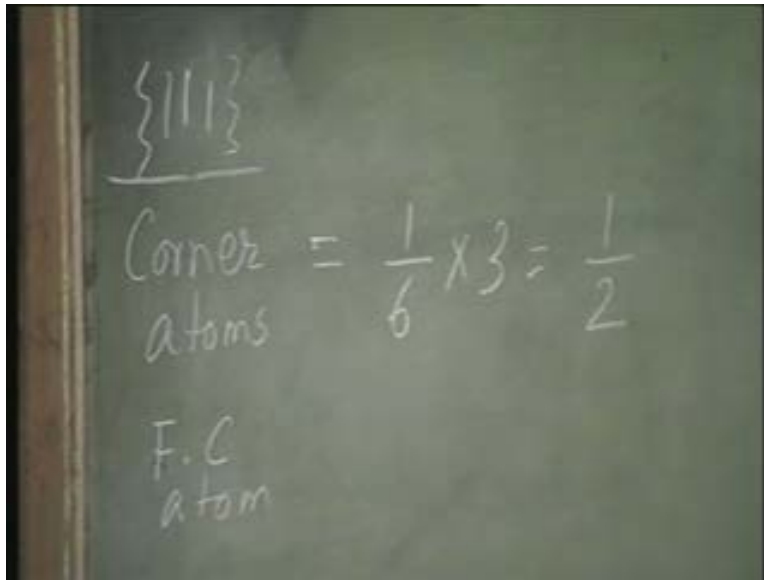 {111}
Corner atoms = 1/6 × 3 = 1/2
F.C atom